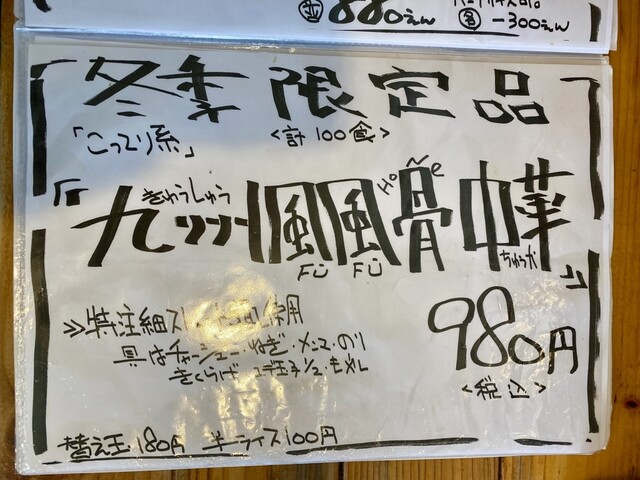 並 880えん
各 -300えん
冬季限定品
「こってり系」
<計100食>
きゅうしゅう
『九州風風骨中華』
Fü Fü Hone
ちゅうか
≫特注細スト 使用
具はチャーシュー・ねぎ・メンマ・のり
きくらげ 玉子1/2・モメル
980円
<税込>
替え玉180円 半ライス100円